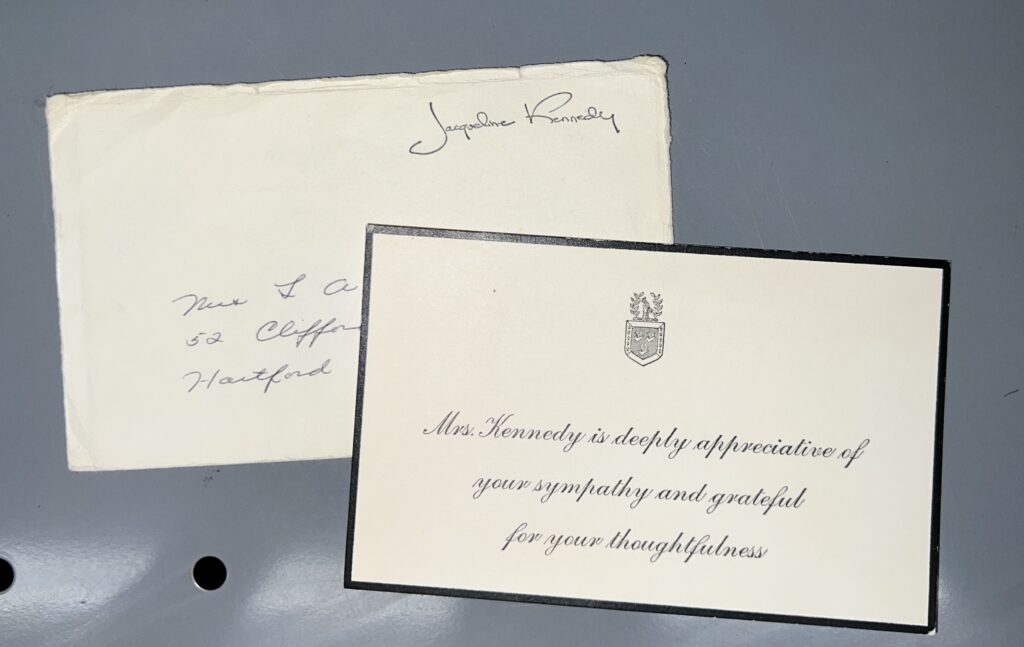 Jacqueline Kennedy
Mrs L A
52 Cliffor
Hartford
Mrs. Kennedy is deeply appreciative of
your sympathy and grateful
for your thoughtfulness